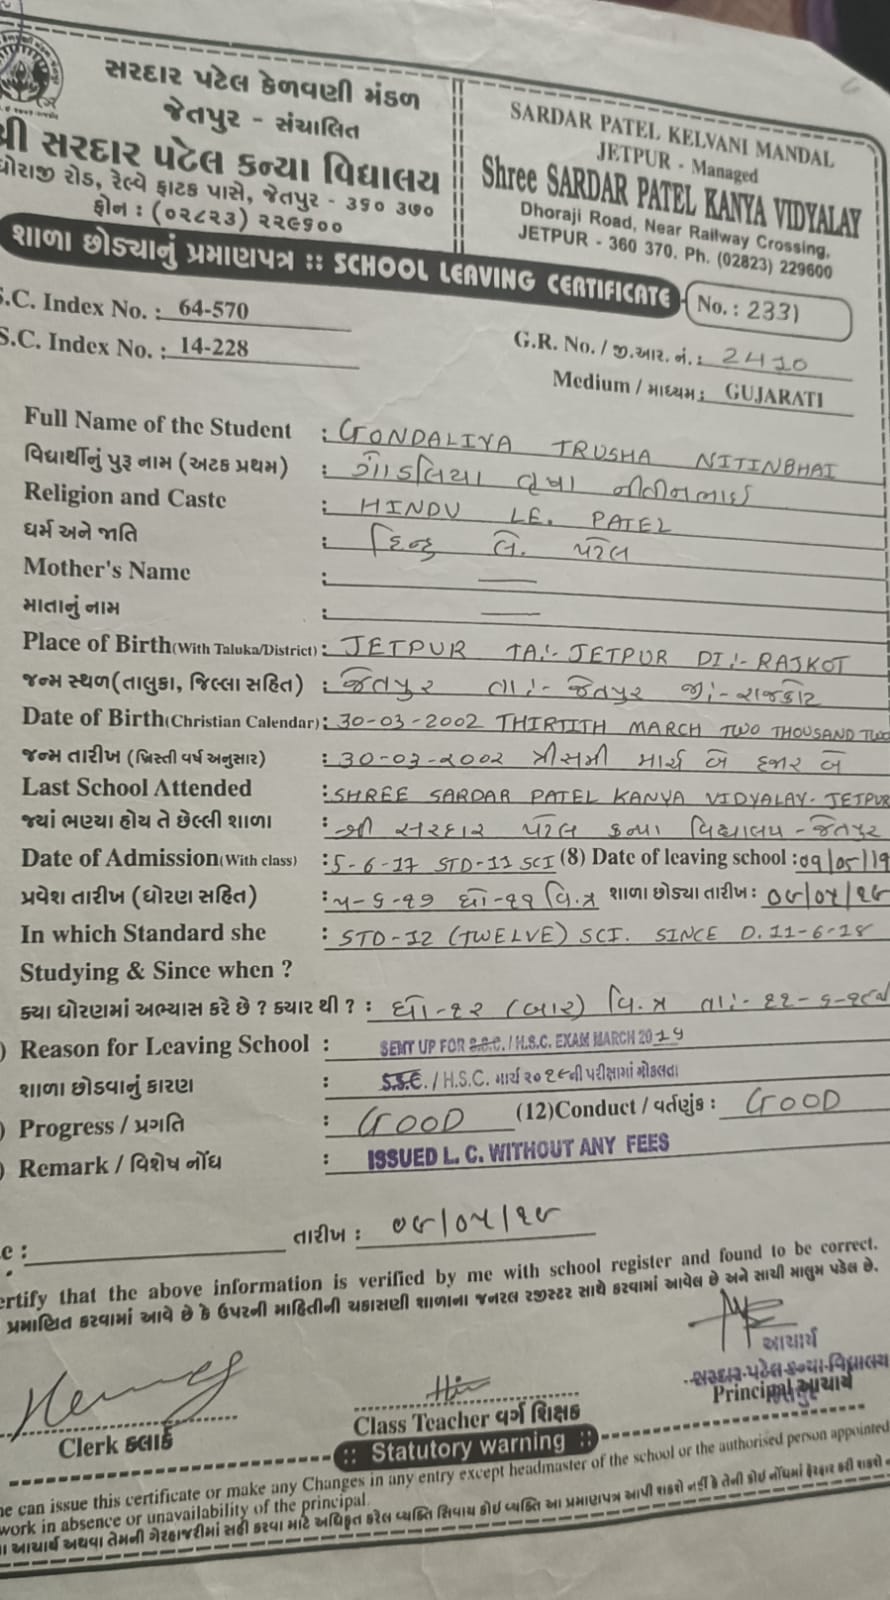 સરદાર પટેલ કેળવણી મંડળ
જેતપુર - સંચાલિત
શ્રી સરદાર પટેલ કન્યા વિદ્યાલય
ધોરાજી રોડ, રેલ્વે ફાટક પાસે, જેતપુર - ૩૬૦ ૩૭૦
ફોન : (૦૨૮૨૩) ૨૨૯૬૦૦
SARDAR PATEL KELVANI MANDAL
JETPUR - Managed
Shree SARDAR PATEL KANYA VIDYALAY
Dhoraji Road, Near Railway Crossing,
JETPUR - 360 370, Ph. (02823) 229600
શાળા છોડ્યાનું પ્રમાણપત્ર :: SCHOOL LEAVING CERTIFICATE
No. : 2331
S.C. Index No. : 64-570
S.C. Index No. : 14-228
G.R. No. / જી.આર. નં. : 2410
Medium / માધ્યમ : GUJARATI
Full Name of the Student : GONDALIYA TRUSHA NITINBHAI
વિદ્યાર્થીનું પુરૂ નામ (અટક પ્રથમ) : ગોંડલિયા તૃષા નીતીનભાઈ
Religion and Caste : HINDU LE. PATEL
ધર્મ અને જાતિ : હિન્દુ લે. પટેલ
Mother's Name : —
માતાનું નામ : —
Place of Birth (With Taluka/District) : JETPUR TA:- JETPUR DI:- RAJKOT
જન્મ સ્થળ (તાલુકા, જિલ્લા સહિત) : જેતપુર તા:- જેતપુર જી:- રાજકોટ
Date of Birth (Christian Calendar) : 30-03-2002 THIRTITH MARCH TWO THOUSAND TWO
જન્મ તારીખ (ખ્રિસ્તી વર્ષ અનુસાર) : ૩૦-૦૩-૨૦૦૨ ત્રીસમી માર્ચ બે હજાર બે
Last School Attended : SHREE SARDAR PATEL KANYA VIDYALAY- JETPUR
જ્યાં ભણ્યા હોય તે છેલ્લી શાળા : શ્રી સરદાર પટેલ કન્યા વિદ્યાલય - જેતપુર
Date of Admission (With class) : 5-6-17 STD-11 SCI (8) Date of leaving school : 09/05/19
પ્રવેશ તારીખ (ધોરણ સહિત) : ૫-૬-૧૭ ધો-૧૧ વિ.પ્ર શાળા છોડ્યા તારીખ : ૦૯/૦૫/૧૯
In which Standard she : STD-12 (TWELVE) SCI. SINCE D. 11-6-18
Studying & Since when ?
ક્યા ધોરણમાં અભ્યાસ કરે છે ? ક્યાર થી ? : ધો-૧૨ (બાર) વિ.પ્ર તા:- ૧૧-૬-૧૮
) Reason for Leaving School : SENT UP FOR S.S.C. / H.S.C. EXAM MARCH 2019
શાળા છોડવાનું કારણ : S.S.C. / H.S.C. માર્ચ ૨૦૧૯ની પરીક્ષામાં મોકલતા
) Progress / પ્રગતિ : GOOD (12) Conduct / વર્તણુંક : GOOD
) Remark / વિશેષ નોંધ : ISSUED L. C. WITHOUT ANY FEES
e : તારીખ : ૦૯/૦૫/૧૯
ertify that the above information is verified by me with school register and found to be correct.
પ્રમાણિત કરવામાં આવે છે કે ઉપરની માહિતીની ચકાસણી શાળાના જનરલ રજીસ્ટર સાથે કરવામાં આવેલ છે અને સાચી માલુમ પડેલ છે.
આચાર્ય
સરદાર પટેલ કન્યા વિદ્યાલય
Clerk ક્લાર્ક
Class Teacher વર્ગ શિક્ષક
Principal આચાર્ય
:: Statutory warning ::
ne can issue this certificate or make any Changes in any entry except headmaster of the school or the authorised person appointed
work in absence or unavailability of the principal.
આચાર્ય અથવા તેમની ગેરહાજરીમાં સહી કરવા માટે અધિકૃત કરેલ વ્યક્તિ સિવાય કોઈ વ્યક્તિ આ પ્રમાણપત્ર આપી શકશે નહીં કે તેની કોઈ નોંધમાં ફેરફાર કરી શકશે